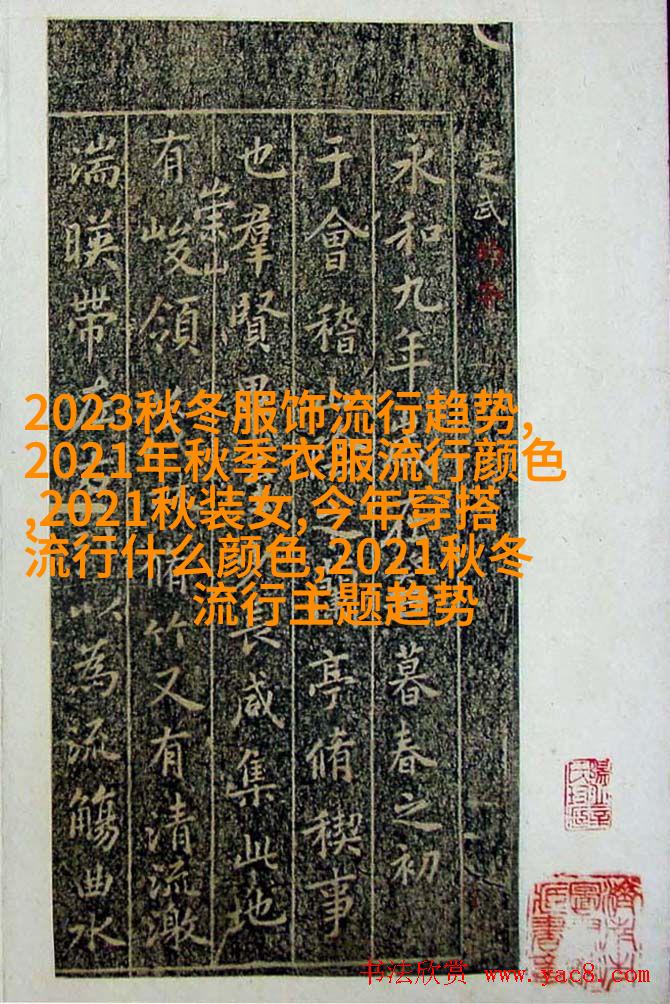 定武
永和九年在暮春之初
于會稽之亭脩稧事
也羣賢長咸集此地
有崇山峻領脩竹又有清流激
湍暎帶左以為流觴曲水
2023秋冬服饰流行趋势,
2021年秋季衣服流行颜色
,2021秋装女,今年穿搭
流行什么颜色,2021秋冬
流行主题趋势
书法欣赏 www.yac8.com